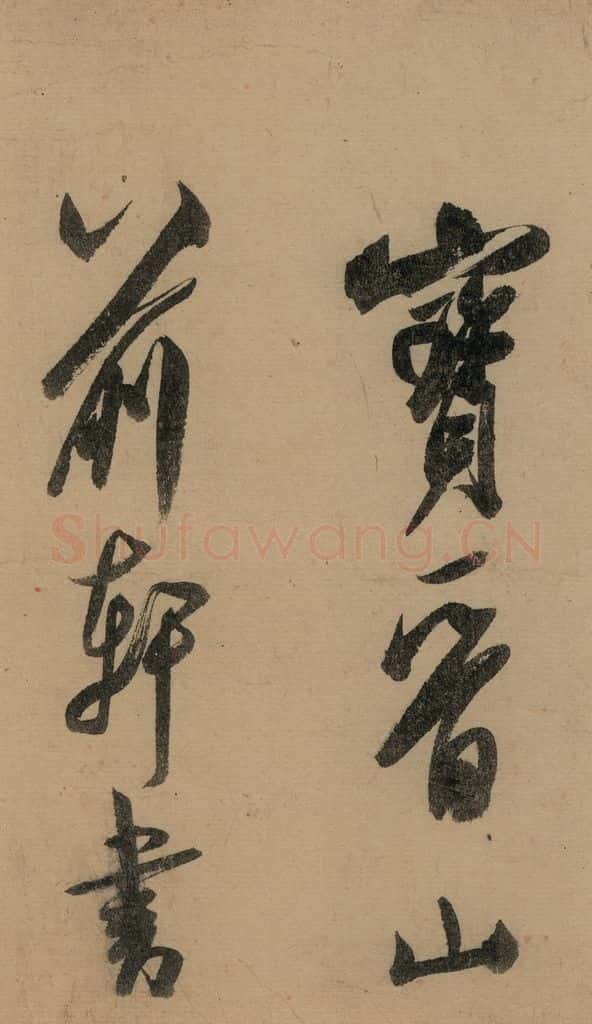 寶晉山
前軒書
Shufawang.CN